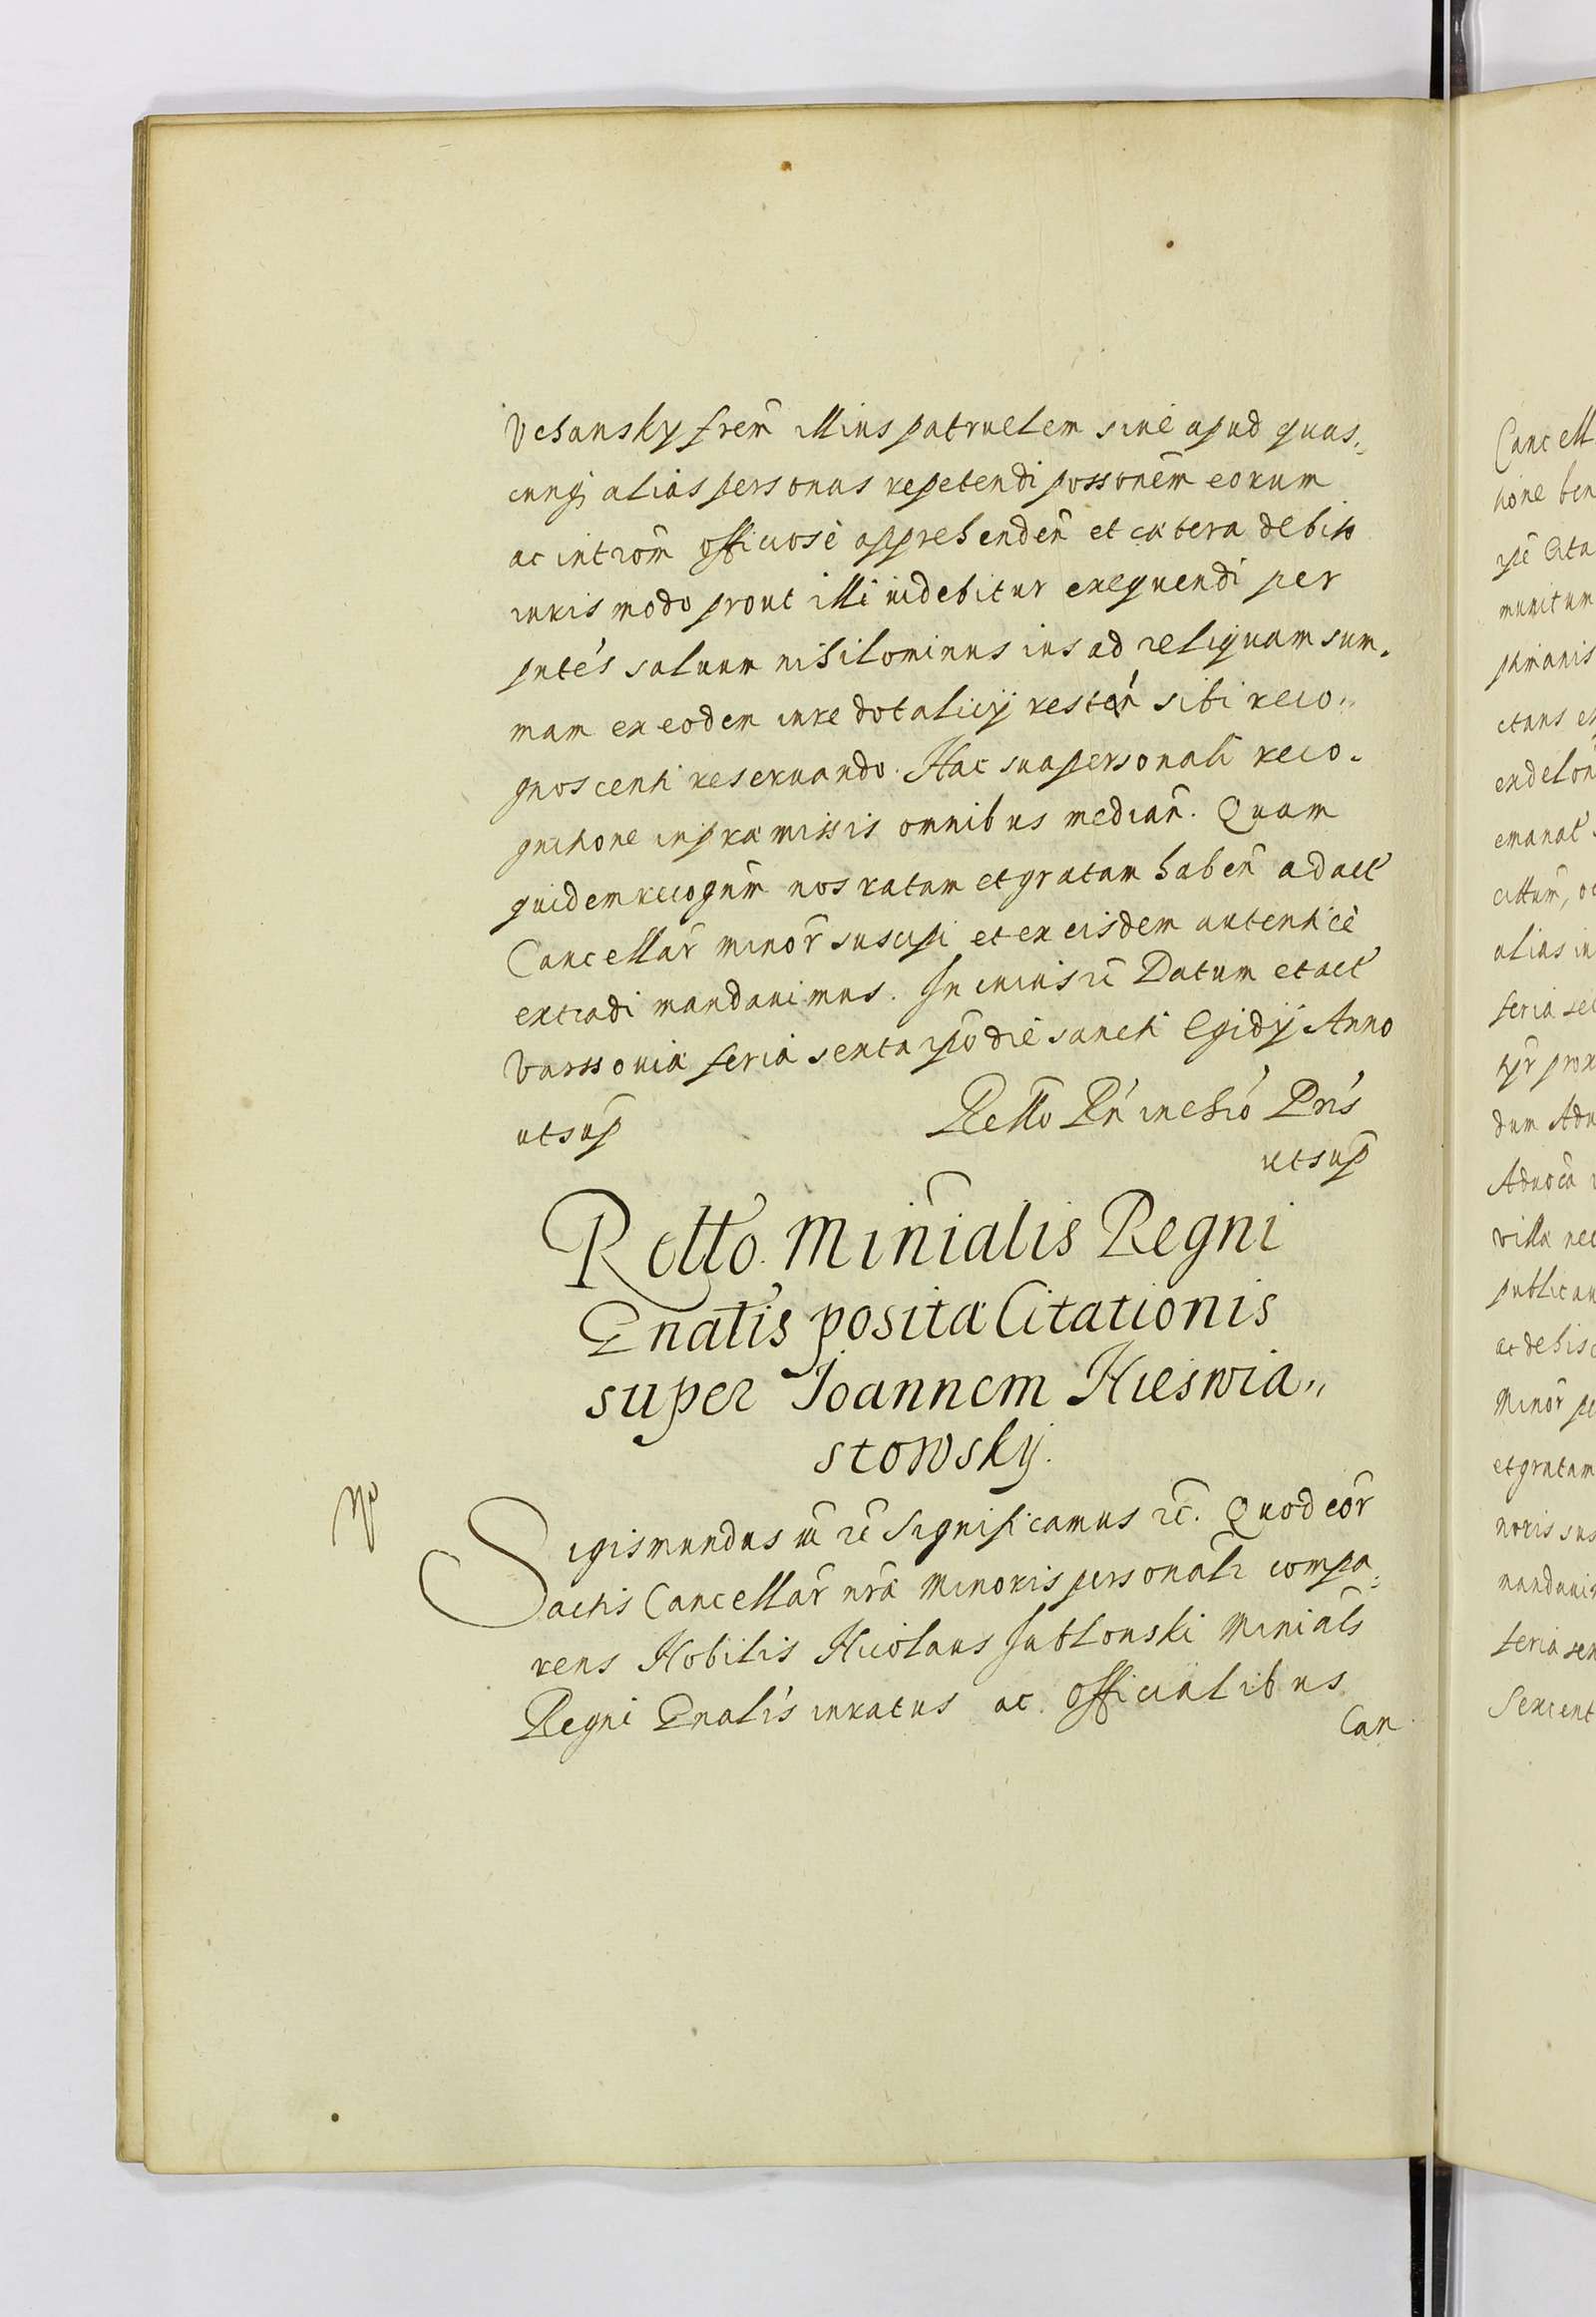 Vchansky frem̃ illius patruelem siue apud quas„
cunq; alias personas repetendi possonem̃ eorum
ac introm̃ officiosè apprehenden̄ et cætera debito
iuris modo prout illi uidebitur exequendi per
pntés saluum nihilominus ius ad reliquam sum„
mam ex eodem iure dotalicij resten̄ sibi reco„
gnoscenti reseruando. Hac sua personali reco„
gnitione inpræmissis omnibus median̄. Quam
quidem recognm̄ nos ratam et gratam haben̄ ad act
Cancellar̄ minor̄ suscipi et ex eisdem autenticè
extradi mandauimus. In cuius rē Datum et act
Varssouiæ feria sexta ipō die sancti Egidij Anno
ut sup̄
Retto Rn̄ inchió Prís
ut sup̄
Retto Minialis Regni
Gnalis positæ Citationis
super Joannem Nieswia„
stowsky.
Np
Sigismundus iii rē Significamus rē. Quod cor̄
actis Cancellar̄ nr̄æ Minoris personalr̄ compa„
rens Nobilis Nicolaus Jablonski Minials
Regni Gnalis iuratus ac officialibus
Can
Cancell
tione ben
ipē Cita
munitum
pmanis
ctans ex
endelon
emanat
cittum, oc
alias in
feria sec
tyr̄ prox
dum Adu
Aduocā
villa nec
publicau
ac de his
Minor̄ pe
et gratam
noris sus
mandauim
feria sex
Sexcent